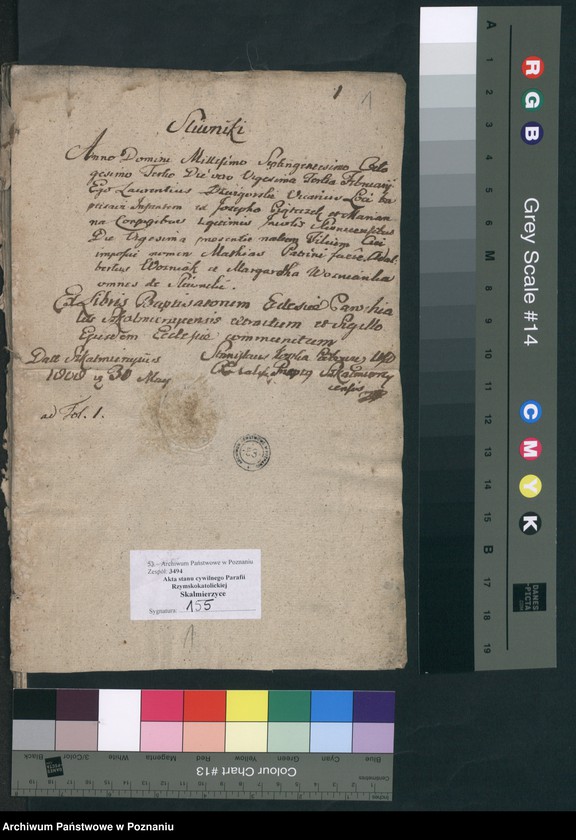 1 1
Sliwniki
Anno Domini Millesimo Septingentesimo Octo
gesimo Tertio Die vero Vigesima Tertia Februarij
Ego Laurentius Vicarius Loci ba
ptisavi Infantem ex Josepho et Marian
na Conjugibus Legitimis
Die Vigesima praesentis natum Filium Cui
imposui nomen Mathias Patrini fuere Adal
bertus Wozniak et Margaretha Wozniaka
omnes de Sliwniki.
Ex Libris Baptisatorum Ecclesiae Parochia
lis Skalmierzycensis extractum et Sigillo
Ejusdem Ecclesiae communitum
Datt Skalmierzyciis
1808 30 May
ad Fol. 1.
53 – Archiwum Państwowe w Poznaniu
Zespół: 3494
Akta stanu cywilnego Parafii
Rzymskokatolickiej
Skalmierzyce
Sygnatura: 155
1
A 1 2 3 4 5 6 M 8 9 10 11 12 13 14 15 B 17 18 19
R G B
Grey Scale #14
C M Y K
DANES
-PICTA
.COM
Blue Cyan Green Yellow Red Magenta White 3/Color Black
Colour Chart #13
Centimetres
Inches
Archiwum Państwowe w Poznaniu